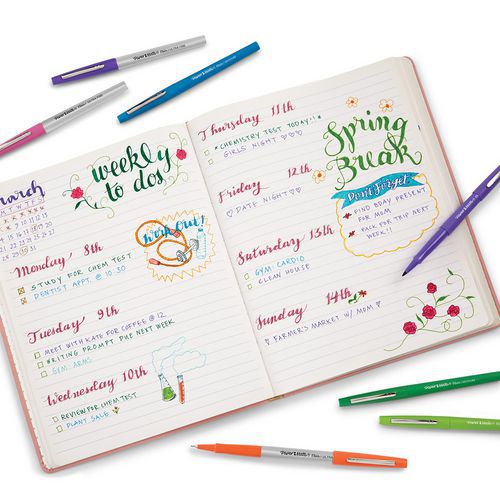 weekly
to dos
march
M T W T F S S
workout!
Monday 8th
STUDY FOR CHEM TEST
DENTIST APPT. @ 10:30
Tuesday 9th
MEET WITH KATE FOR COFFEE @ 12
WRITING PROMPT DUE NEXT WEEK
GYM-ARMS
Wednesday 10th
REVIEW FOR CHEM TEST
PLANT SALE
Thursday 11th
*CHEMISTRY TEST TODAY!!*
GIRLS NIGHT ♡♡♡
Friday 12th
♡ DATE NIGHT ♡♡♡
Saturday 13th
GYM-CARDIO
CLEAN HOUSE
Sunday 14th
♡ FARMER'S MARKET W/ MOM ♡
Spring
Break
Don't Forget
FIND BDAY PRESENT
FOR MOM
PACK FOR TRIP NEXT
WEEK!!
Paper Mate Flair
Paper Mate Flair
Paper Mate Flair
Paper Mate
Paper Mate
Paper Mate Flair